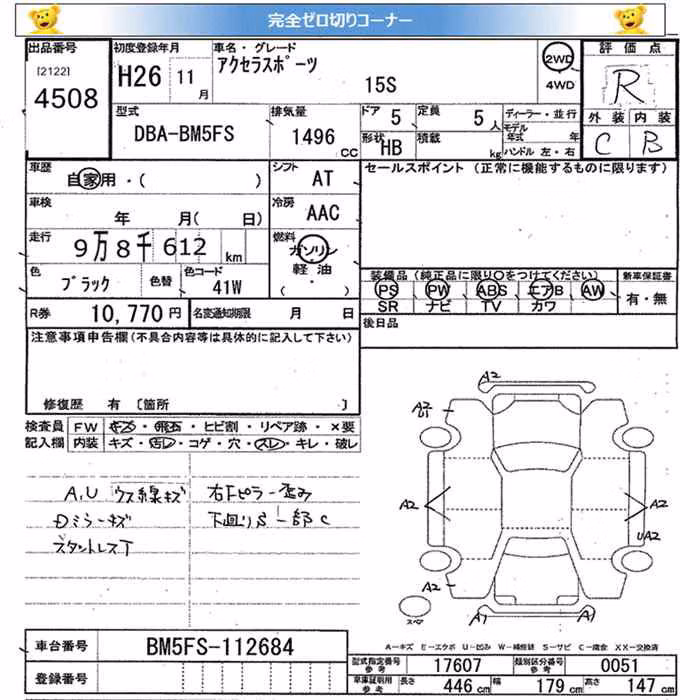 完全ゼロ切りコーナー
出品番号
[2122]
4508
初度登録年月
H26 11月
車名・グレード
アクセラスポーツ
15S
2WD
4WD
評価点
R
外装 内装
C B
型式
DBA-BM5FS
排気量
1496 CC
ドア 5
定員 5人
形状 HB
積載 kg
ディーラー・並行
モデル年式 年
ハンドル 左・右
車歴
自家用・( )
シフト AT
車検
年 月( 日)
冷房 AAC
走行
9万8千612 km
燃料
ガソリン
軽油
( )
色 ブラック
色替
色コード 41W
R券 10,770円
名変通知期限 月 日
セールスポイント (正常に機能するものに限ります)
装備品(純正品に限り○をつけてください)
PS PW ABS エアB AW
SR ナビ TV カワ
新車保証書
有・無
後日品
注意事項申告欄(不具合内容等は具体的に記入して下さい)
修復歴 有 〔箇所 〕
検査員記入欄
FW キズ・飛石・ヒビ割・リペア跡・×要
内装 キズ・汚レ・コゲ・穴・スレ・キレ・破レ
A,U ウス線キズ
Dミラーキズ
スタントレス下
右Fピラー歪み
下廻りS 一部C
A2
A2
U1
A2
A2
UA2
A2
A1
A1
スペア
A-キズ E-エクボ U-凹み W-補修跡 S-サビ C-腐食 XX-交換済
車台番号 BM5FS-112684
登録番号
型式指定番号参考 17607
類別区分番号参考 0051
車庫証明用参考 長さ 446cm 幅 179cm 高さ 147cm